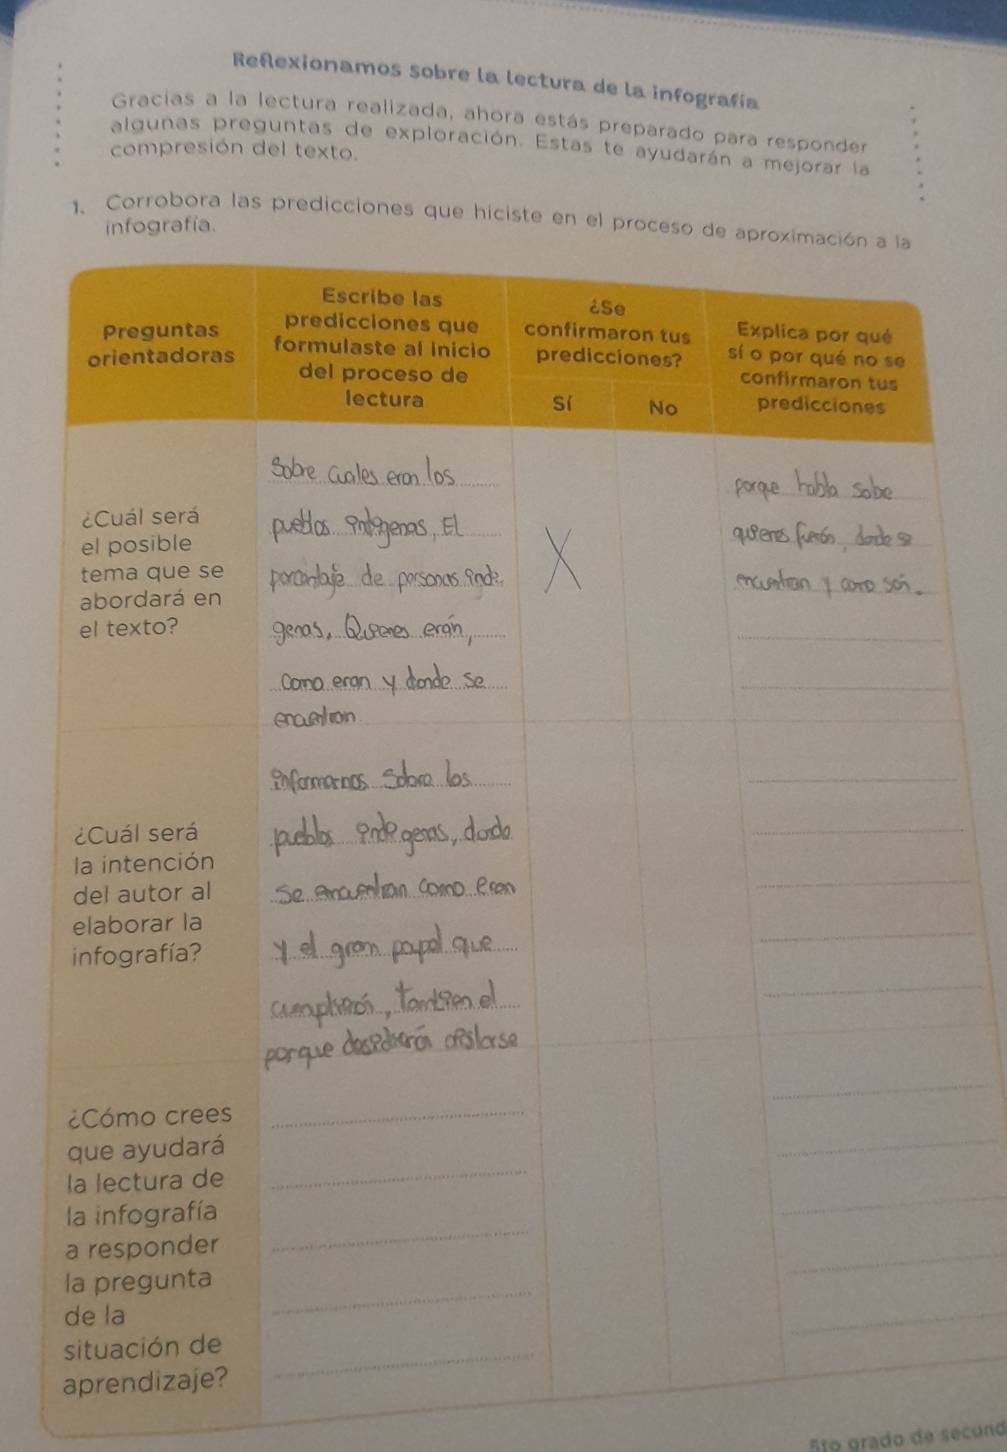 Reflexionamos sobre la lectura de la infografía
Gracias a la lectura realizada, ahora estás preparado para responder
algunas preguntas de exploración. Estas te ayudarán a mejorar la
compresión del texto.
1. Corrobora las predicciones que hiciste en el proceso de aproximación a la
infografía.
Preguntas
orientadoras
Escribe las
predicciones que
formulaste al inicio
del proceso de
lectura
¿Se
confirmaron tus
predicciones?
Sí
No
Explica por qué
sí o por qué no se
confirmaron tus
predicciones
¿Cuál será
el posible
tema que se
abordará en
el texto?
Sobre cuales eran los
pueblos indigenas, El
porcentaje de personas indi-
genas, Quienes erán,
como eran y donde se
encuentran
X
porque habla sobe
quienes fuerón, donde se
encuentran y como són.
¿Cuál será
la intención
del autor al
elaborar la
infografía?
informarnos sobre los
pueblos indigenas, donde
se encuentran como eran
y el gran papel que
cumplierón, tambien el
porque desidierón aislarse
¿Cómo crees
que ayudará
la lectura de
la infografía
a responder
la pregunta
de la
situación de
aprendizaje?
5to grado de secund